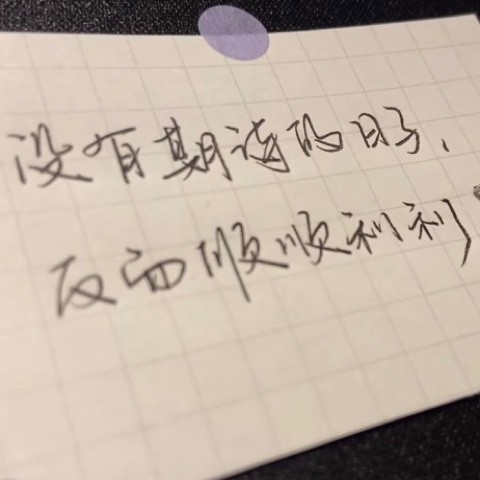 没有期待的日子,
反而顺顺利利